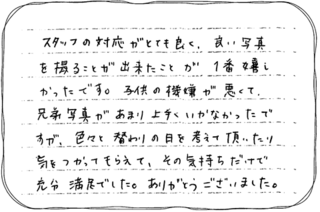 スタッフの対応がとても良く、良い写真
を撮ることが出来たことが1番嬉し
かったです。子供の機嫌が悪くて、
兄弟写真があまり上手くいかなかったで
すが、色々と替わりの日を考えて頂いたり
気をつかってもらえて、その気持ちだけで
充分満足でした。ありがとうございました。